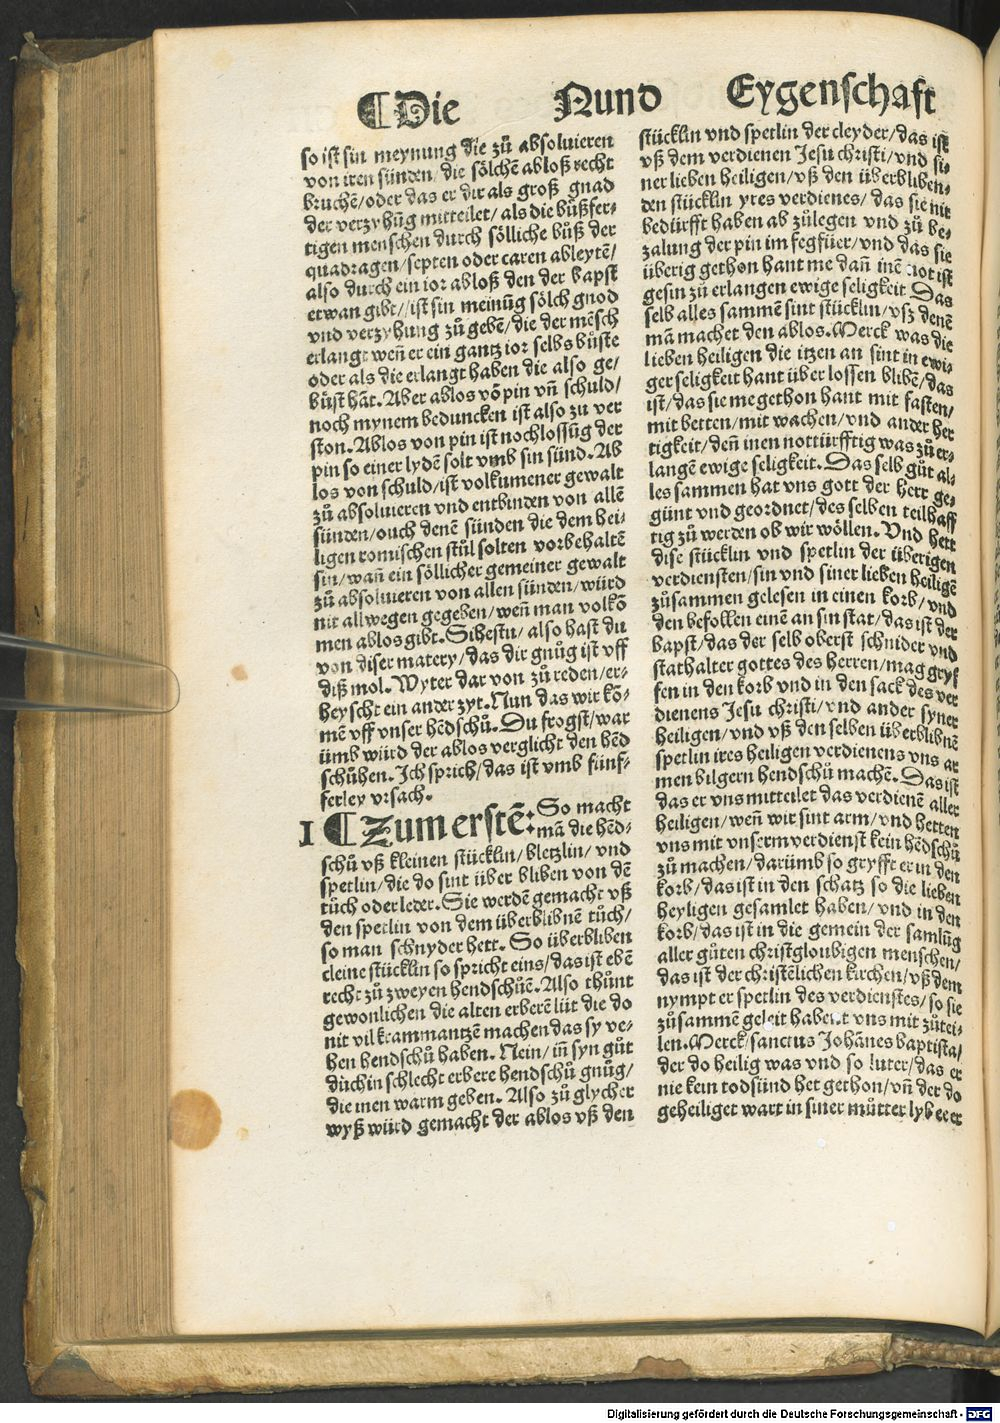 ¶Die Nund Eygenschaft
so ist sin meynung die zů absoluieren
von iren sünden/ die sölchē abloß recht
bruchē/oder das er dir als groß gnad
der verzyhūg mitteilet/ als die bůßfer-
tigen menschen durch sölliche bůß der
quadragen/septen oder caren ableytē/
also durch ein ior abloß den der bapst
etwan gibt//ist sin meinūg sölch gnod
vnd verzyhung zů gebē/die der mēsch
erlangt weñ er ein gantz ior selbs bůste
oder als die erlangt haben die also ge/
bůst hāt. Aber ablos vō pin vñ schuld/
noch mynem beduncken ist also zu ver
ston. Ablos von pin ist nochlossūg der
pin so einer lydē solt vmb sin sünd. Ab
los von schuld/ist volkumener gewalt
zů absoluieren vnd entbinden von allē
sünden/ouch denē sünden die dem hei-
ligen romischen stůl solten vorbehaltē
sin/wañ ein söllicher gemeiner gewalt
zů absoluieren von allen sünden/würd
nit allwegen gegeben/weñ man volkō
men ablos gibt. Sihestu/also hast du
von diser matery/das dir gnůg ist vff
diß mol. Wyter dar von zů reden/er-
heyscht ein ander zyt. Nun das wir kō-
mē vff vnser hēdschů. Du frogst/war
ümb würd der ablos verglicht den hēd
schůhen. Ich sprich/das ist vmb fünf-
ferley vrsach.
1 ¶Zum erstē: So macht
mā die hēd-
schů vß kleinen stücklin/bletzlin/vnd
spetlin/die do sint über bliben von dē
tůch oder leder. Sie werdē gemacht vß
den spetlin von dem überblibnē tůch/
so man schnyder hett. So überbliben
cleine stücklin so spricht eins/das ist ebē
recht zů zweyen hendschůē. Also thůnt
gewonlichen die alten erberē lüt die do
nit vil krammantzē machen das sy ve-
hen hendschů haben. Nein/iñ syn gůt
důchin schlecht erbere hendschů gnůg/
die inen warm geben. Also zů glycher
wyß würd gemacht der ablos vß den
stücklin vnd spetlin der cleyder/das ist
vß dem verdienen Jesu christi/vnd si-
ner lieben heiligen/vß den überbliben-
den stücklin yres verdienes/das sie nit
bedürfft haben ab zůlegen vnd zů be-
zalung der pin im fegfüer/vnd das sie
überig gethon hant me dañ inē not ist
gesin zů erlangen ewige seligkeit. Das
selb alles sammē sint stücklin/vsz denē
mā machet den ablos. Merck was die
lieben heiligen die itzen an sint in ewi-
ger seligkeit hant über lossen blibē/das
ist/das sie me gethon hant mit fasten/
mit betten/mit wachen/vnd ander her
tigkeit/deñ inen nottürfftig was zů er-
langē ewige seligkeit. Das selb gůt al-
les sammen hat vns gott der herr ge-
günt vnd geordnet/des selben teilhaff
tig zů werden ob wir wöllen. Vnd hett
dise stücklin vnd spetlin der überigen
verdiensten/sin vnd siner lieben heiligē
zůsammen gelesen in einen korb/vnd
den befollen einē an sin stat/das ist der
bapst/das der selb oberst schnider vnd
stathalter gottes des herren/mag gryf
fen in den korb vnd in den sack des ver
dienens Jesu christi/vnd ander syner
heiligen/vnd vß den selben überblibnē
spetlin ires heiligen verdienens vns ar
men bilgern hendschů machē. Das ist
das er vns mitteilet das verdienē aller
heiligen/weñ wir sint arm/vnd hetten
vns mit vnserm verdienst kein hēdschů
zů machen/darümb so gryfft er in den
korb/das ist in den schatz so die lieben
heyligen gesamlet haben/vnd in den
korb/das ist in die gemein der samlūg
aller gůten christgloubigen menschen/
das ist der christēlichen kirchen/vß dem
nympt er spetlin des verdienstes/so sie
zůsammē geleit habent vns mit zůtei-
len. Merck/sanctus Johānes baptista/
der do heilig was vnd so luter/das er
nie kein todsünd het gethon/vñ der do
geheiliget wart in siner můtter lyb ee er
Digitalisierung gefördert durch die Deutsche Forschungsgemeinschaft - DFG